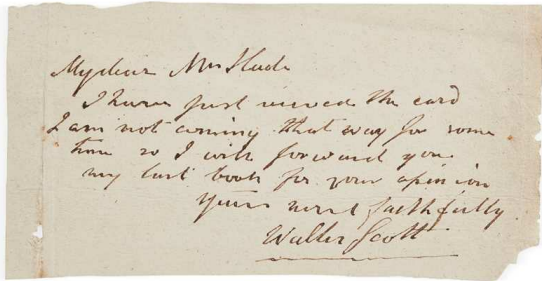 My dear Mrs Slade
I have just received the card
I am not coming that way for some
time so I will forward you
my last book for your opinion
Yours most faithfully
Walter Scott